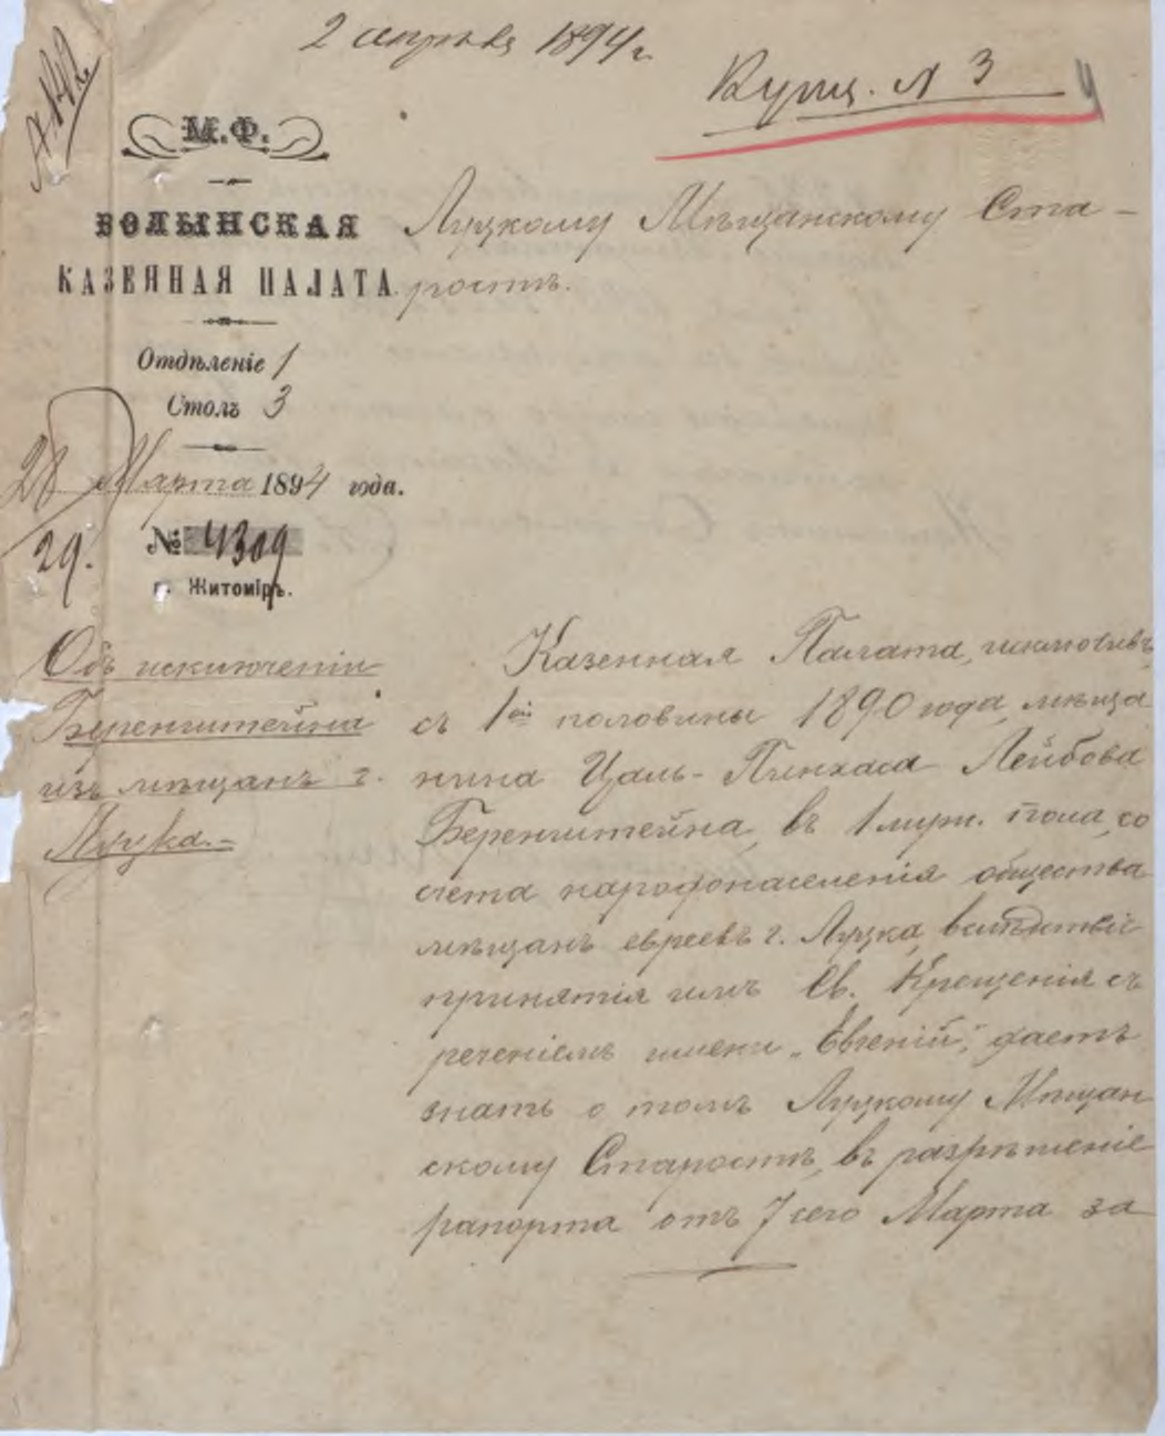 2 апрѣля 1894 г.
№ 3
4
М.Ф.
ВОЛЫНСКАЯ
КАЗЕННАЯ ПАЛАТА.
Отдѣленіе 1
Столъ 3
28 Марта 1894 года.
29.
№ 4309
г. Житоміръ.
Объ исключеніи
Беренштейна
изъ мѣщанъ г.
Луцка.–
Луцкому Мѣщанскому Ста–
ростѣ.
Казенная Палата, исключивъ
съ 1ой половины 1890 года, мѣща
нина Цаль-Пинхаса Лейбова
Беренштейна, въ 1 муж. пола, со
счета народонаселенія общества
мѣщанъ евреевъ г. Луцка, вслѣдствіе
принятія имъ Св. Крещенія съ
реченіемъ имени „Евгеній", даетъ
знать о томъ Луцкому Мѣщан
скому Старостѣ, въ разрѣшеніе
рапорта отъ 7 сего Марта за